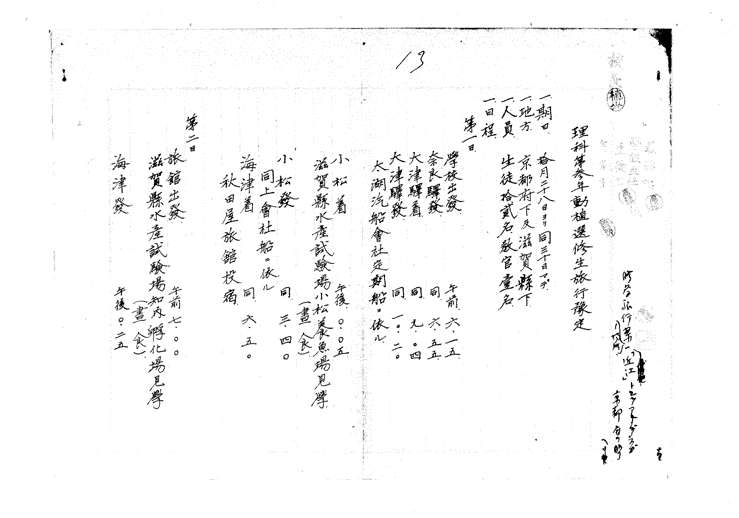 13
理科第叁年動植選修生旅行豫定
一、期日 拾月二十八日ヨリ同三十日マデ
一、地方 京都府下及滋賀縣下
一、人員 生徒拾貳名教官壹名
一、日程
第一日
學校出發 午前 六.一五
奈良驛發 同 六.五五
大津驛着 同 九.〇四
大津驛發 同 一〇.二〇
太湖汽船會社定期船ニ依ル
小松着 午後 〇.〇五
滋賀縣水產試驗場小松養魚場見學
(晝食)
小松發 同 三.四〇
同上會社船ニ依ル
海津着 同 六.五〇
秋田屋旅館投宿
第二日
旅館出發 午前七.〇〇
滋賀縣水產試驗場知內孵化場見學
(晝食)
海津發 午後〇.二五